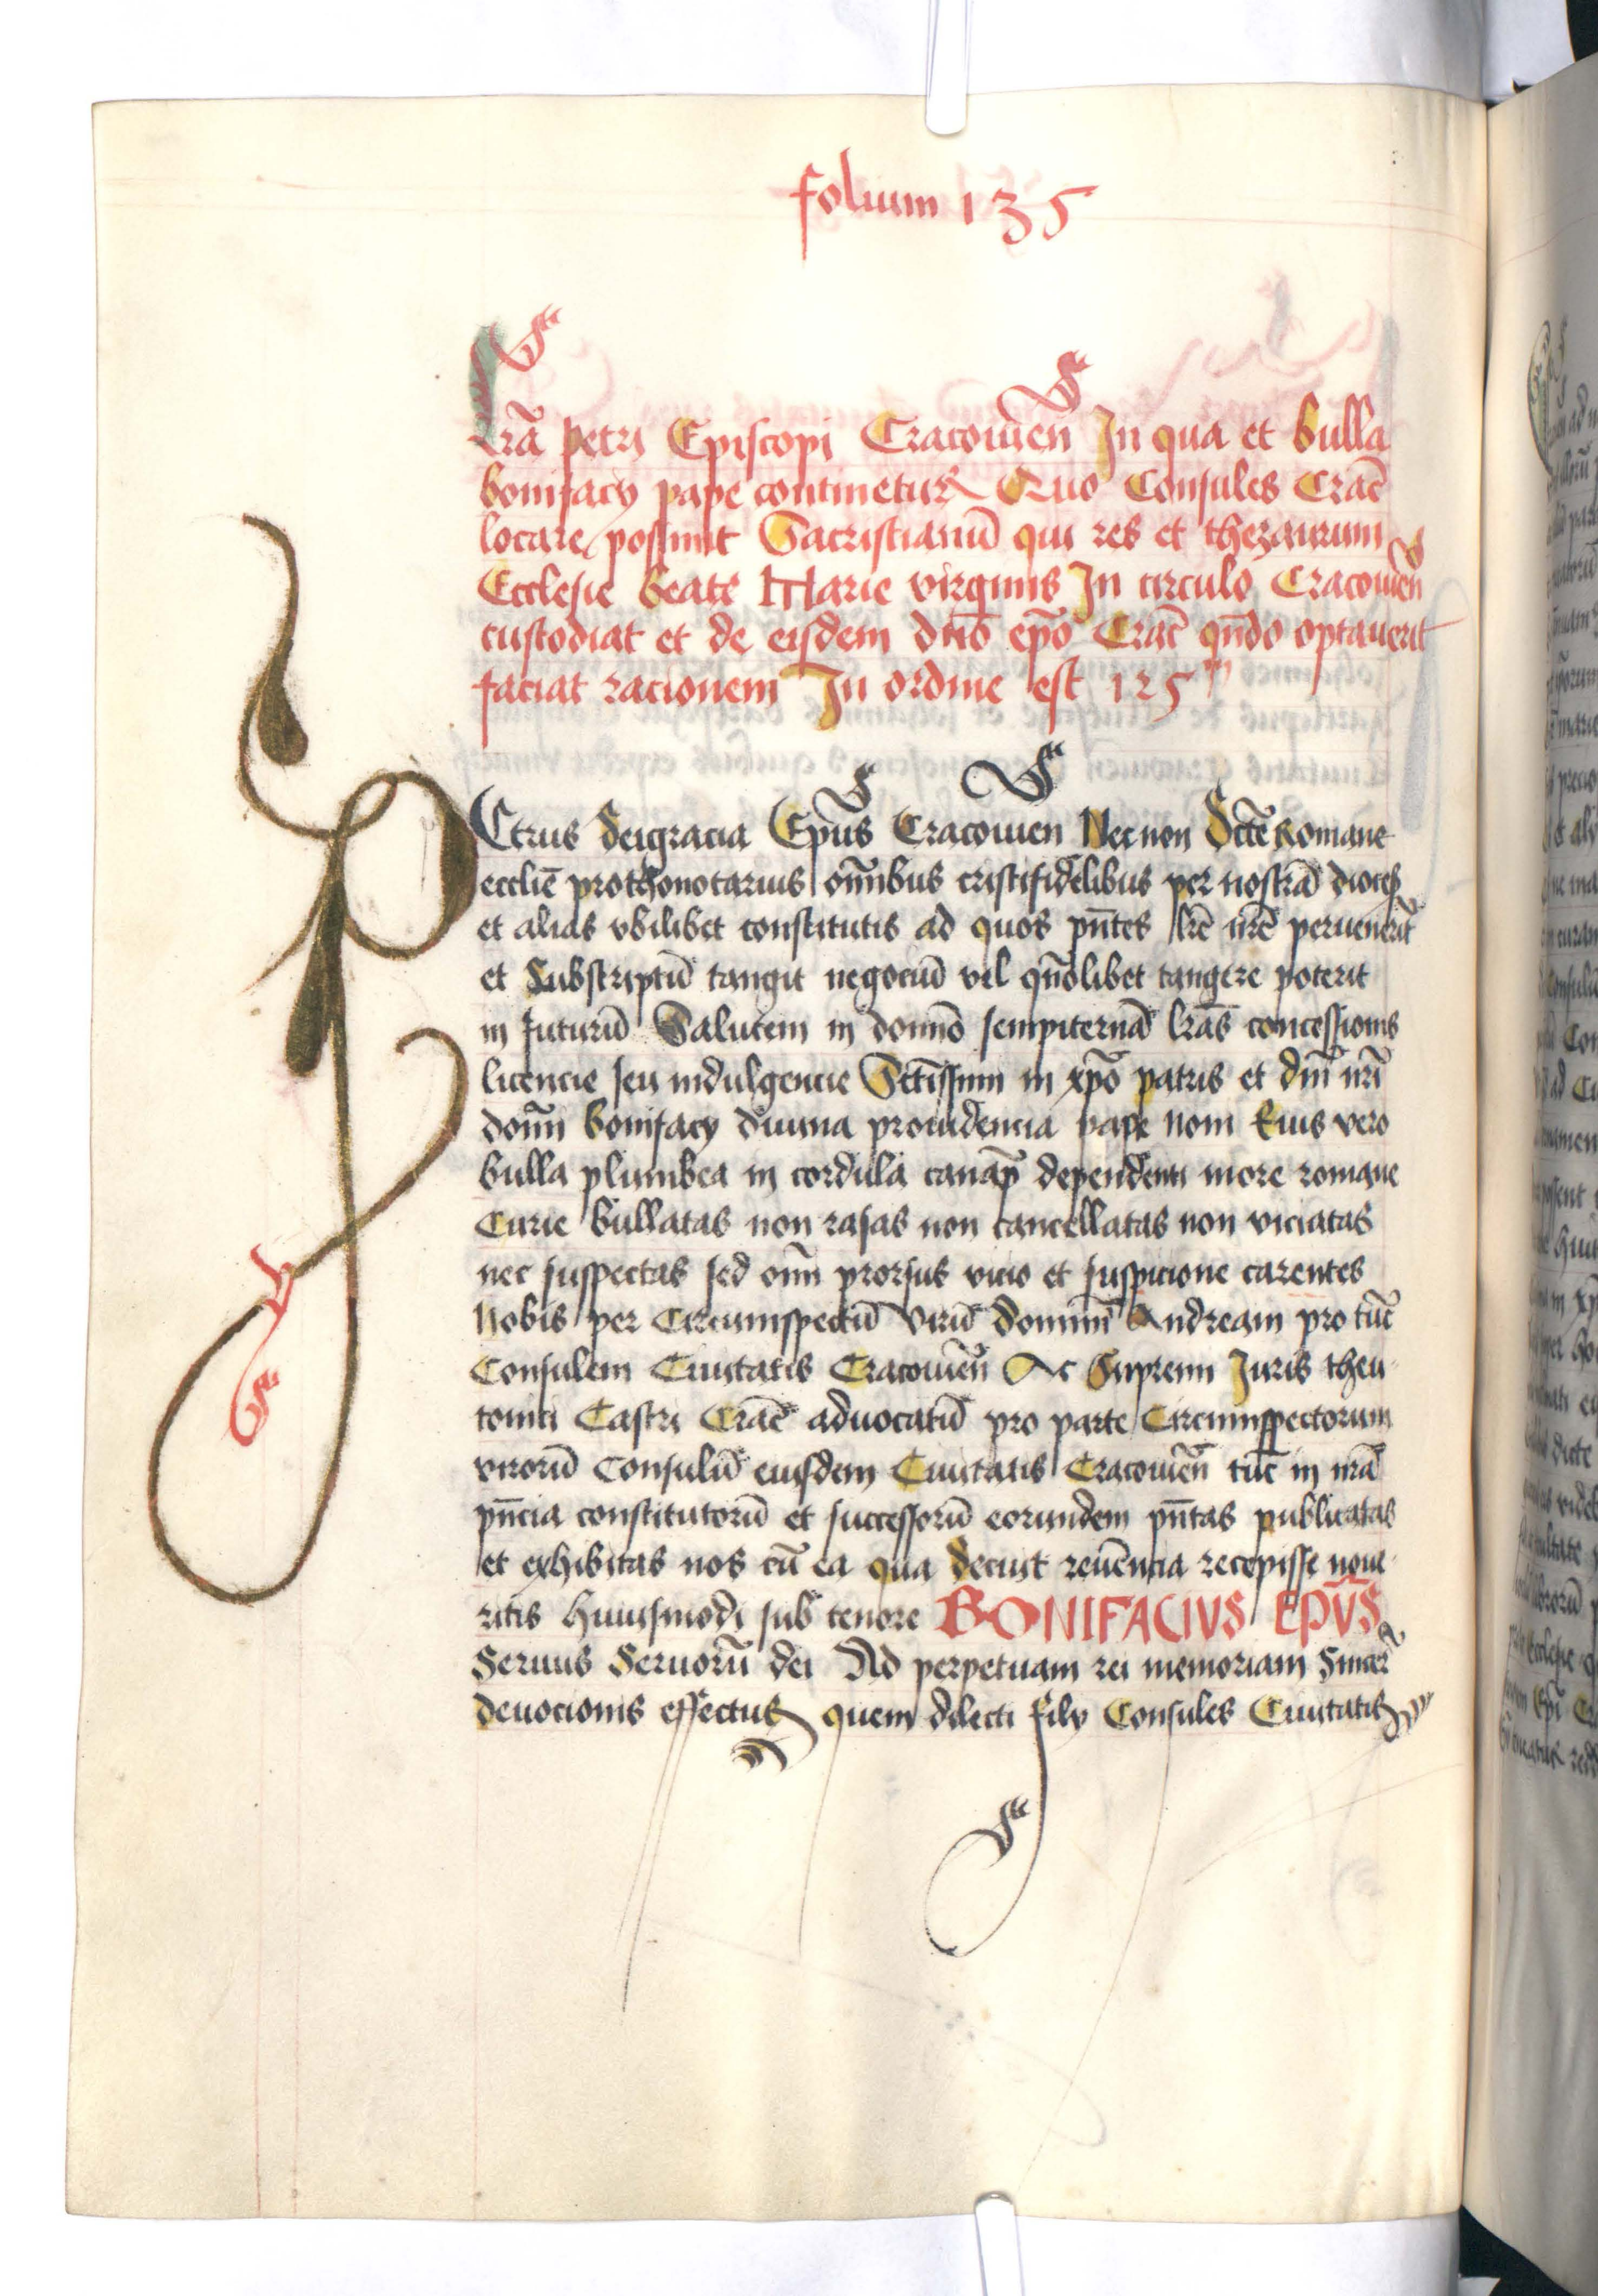 folium 135
Lr̃a petri Episcopi Cracouien̄ In qua et bulla
bonifacy pape continetur Quo Consules Crac̄
locare possunt Sacristianū qui res et thezaurum
Ecclesie beate Marie virginis In circulo Cracouien̄
custodiat et de eisdem dn̄o ep̄o Crac̄ qn̄do optauerit
faciat racionem In ordine est 125ᵐ
PEtrus deigracia Ep̄us Cracouien Nec non Sc̄te Romane
eccliē prothonotarius om̄ibus cristifidelibus per nostrā dioces̄
et alias vbilibet constitutis ad quos pn̄tes lr̄e nr̄e peruenerīt
et Subscriptū tangit negociū vel qn̄olibet tangere poterit
in futurū Salutem in domīo sempiternā lr̄as concessionis
licencie seu indulgencie Sct̄issimi in xp̄o patris et dn̄i nr̄i
domī bonifacy diuina prouidencia pape noni Eius vero
bulla plumbea in cordula canap̄ dependenti more romane
Curie bullatas non rasas non cancellatas non viciatas
nec suspectas sed om̄i prorsus vicio et suspicione carentes
Nobis per Circumspectū virū dominū Andream pro tūc
Consulem Ciuitatis Cracouien̄ Ac Supremi Juris theu
tonici Castri Crac̄ aduocatū pro parte Circumspectorum
virorū Consulū eiusdem Ciuitatis Cracouien̄ tūc in nr̄a
pn̄cia constitutorū et successorū eorundem pn̄tas publicatas
et exhibitas nos cū ea qua decuit reuēncia recepisse noue
ritis huiusmodi sub tenore BONIFACIVS EPV̄S
Seruus Seruorū dei Ad perpetuam rei memoriam Sincer̄
deuocionis effectus quem dilecti filÿ Consules Ciuitatis